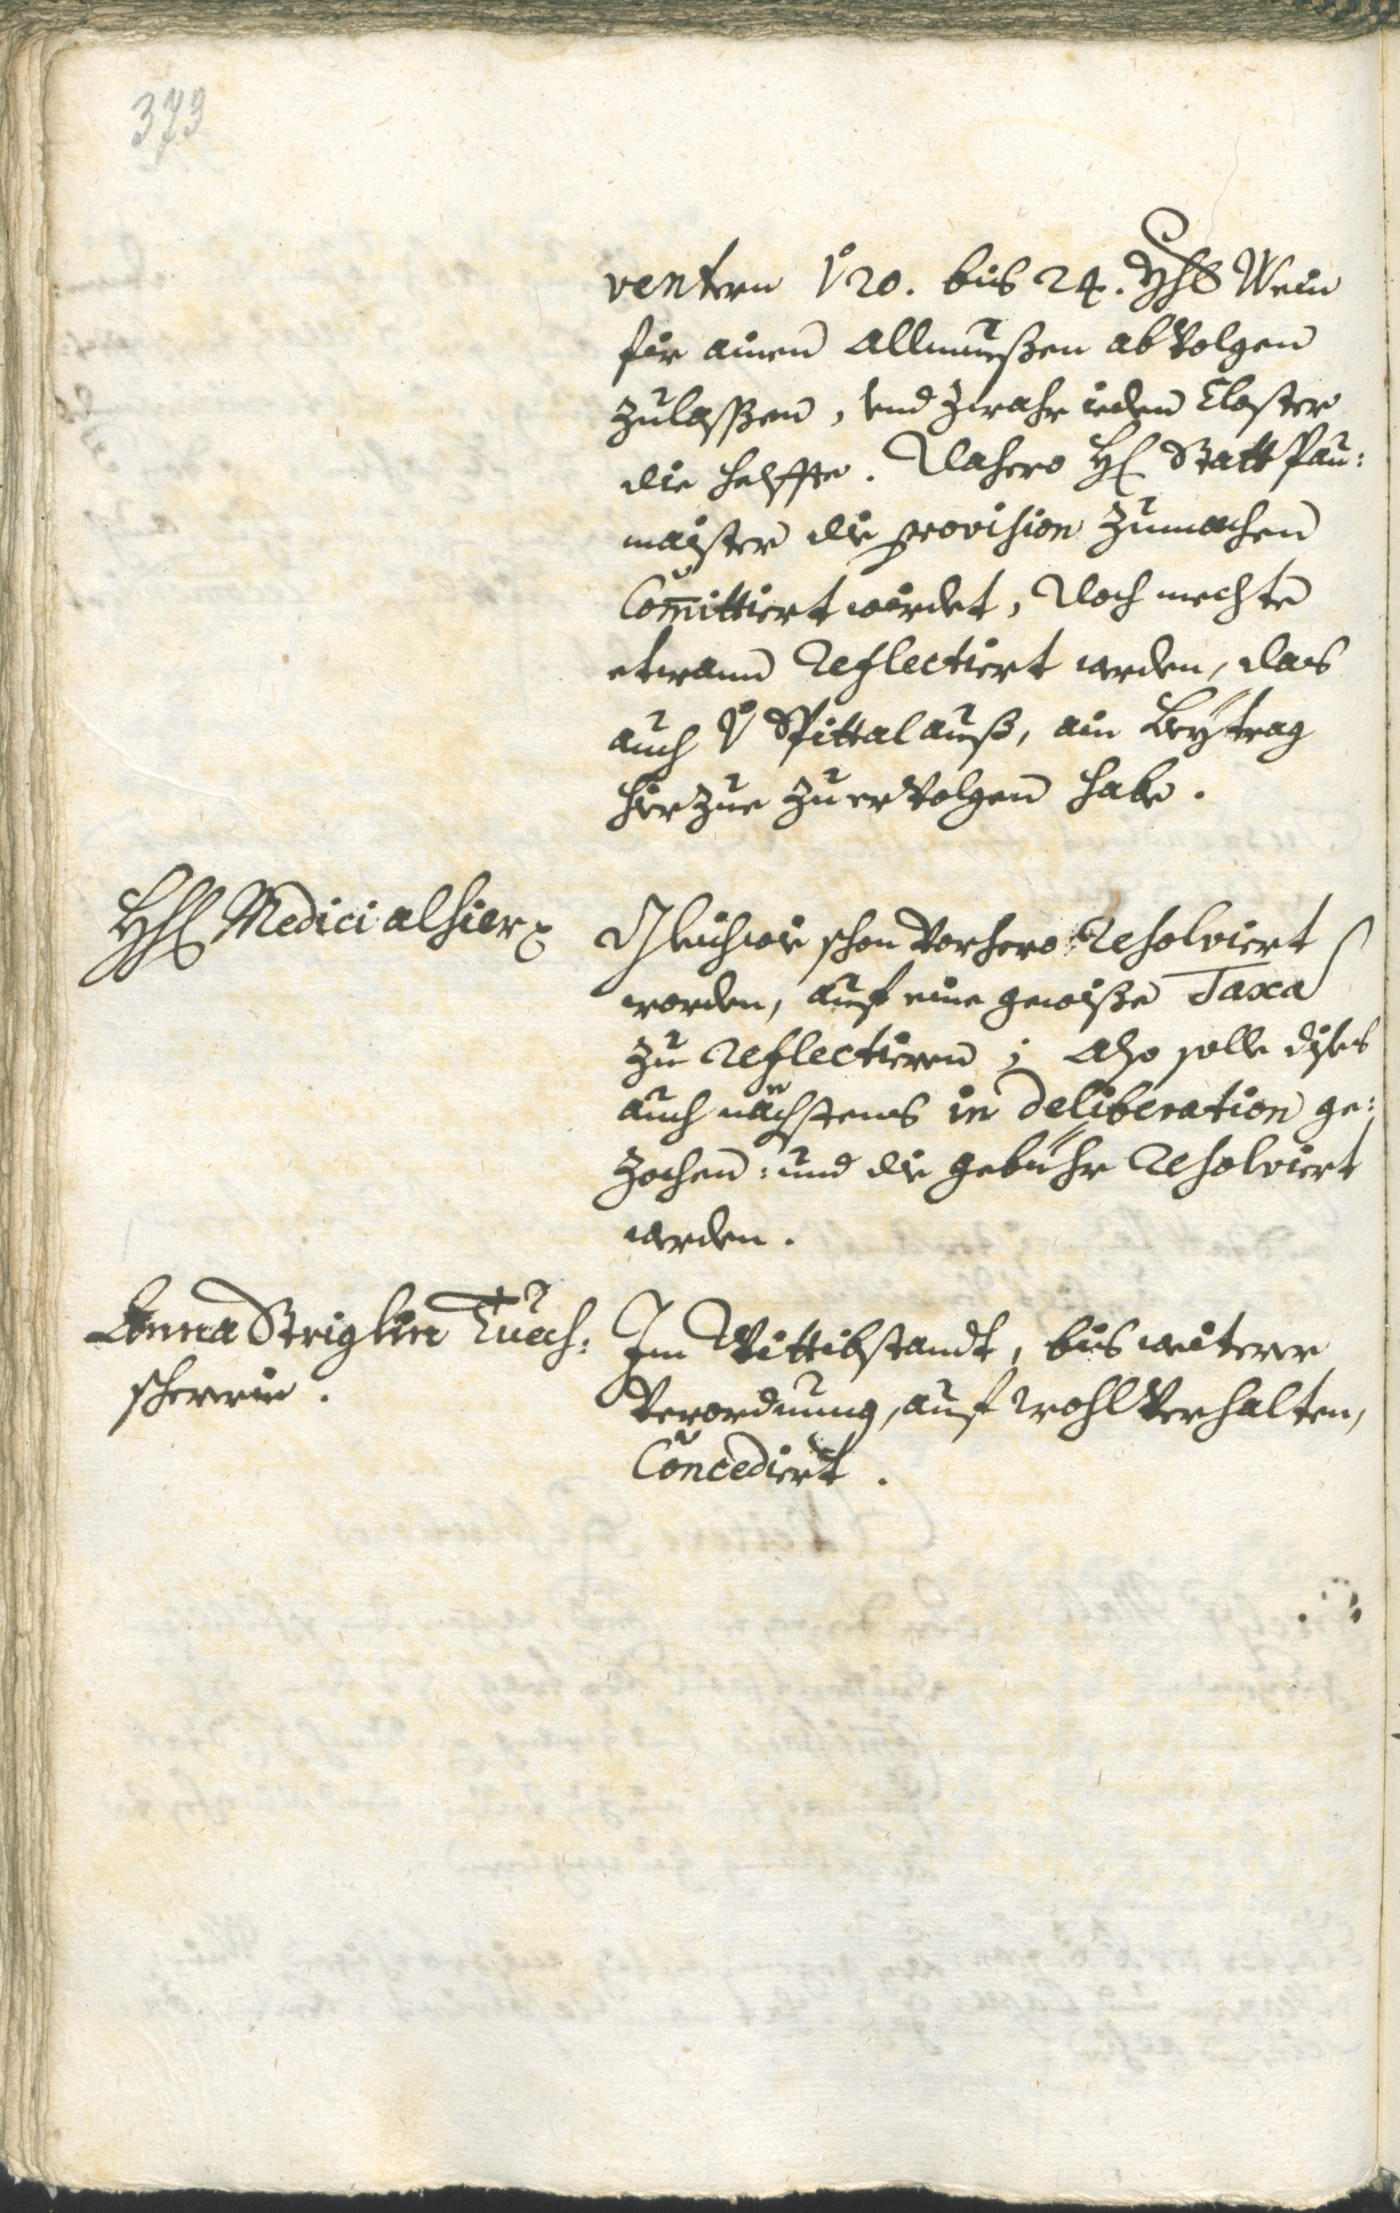 373
ventern 20. bis 24. Yhß Wein
für ainen Allmueßen abVolgen
zulaßßen, vnd zwahr ieden Closter
die helffte. Dahero H: Statt Pau:
maister die provision zumachen
Comittiert würdet, Doch mechte
etwann Reflectiert werden, das
auch Spittal auß, ain Beytrag
hierzue zu erVolgen habe.
HH: Medici alhier
Gleichwie schon Vorhero Resolviert
worden, auf eine gewiße Taxa
zu Reflectieren; Also solle dises
auch nächstens in deliberation ge:
zochen: und die gebühr Resolviert
werden.
Anna Striglin Tuech:
schererin.
Im Wittibstandt, bis weiterer
Verordnung, auf wohl Verhalten,
Concediert.